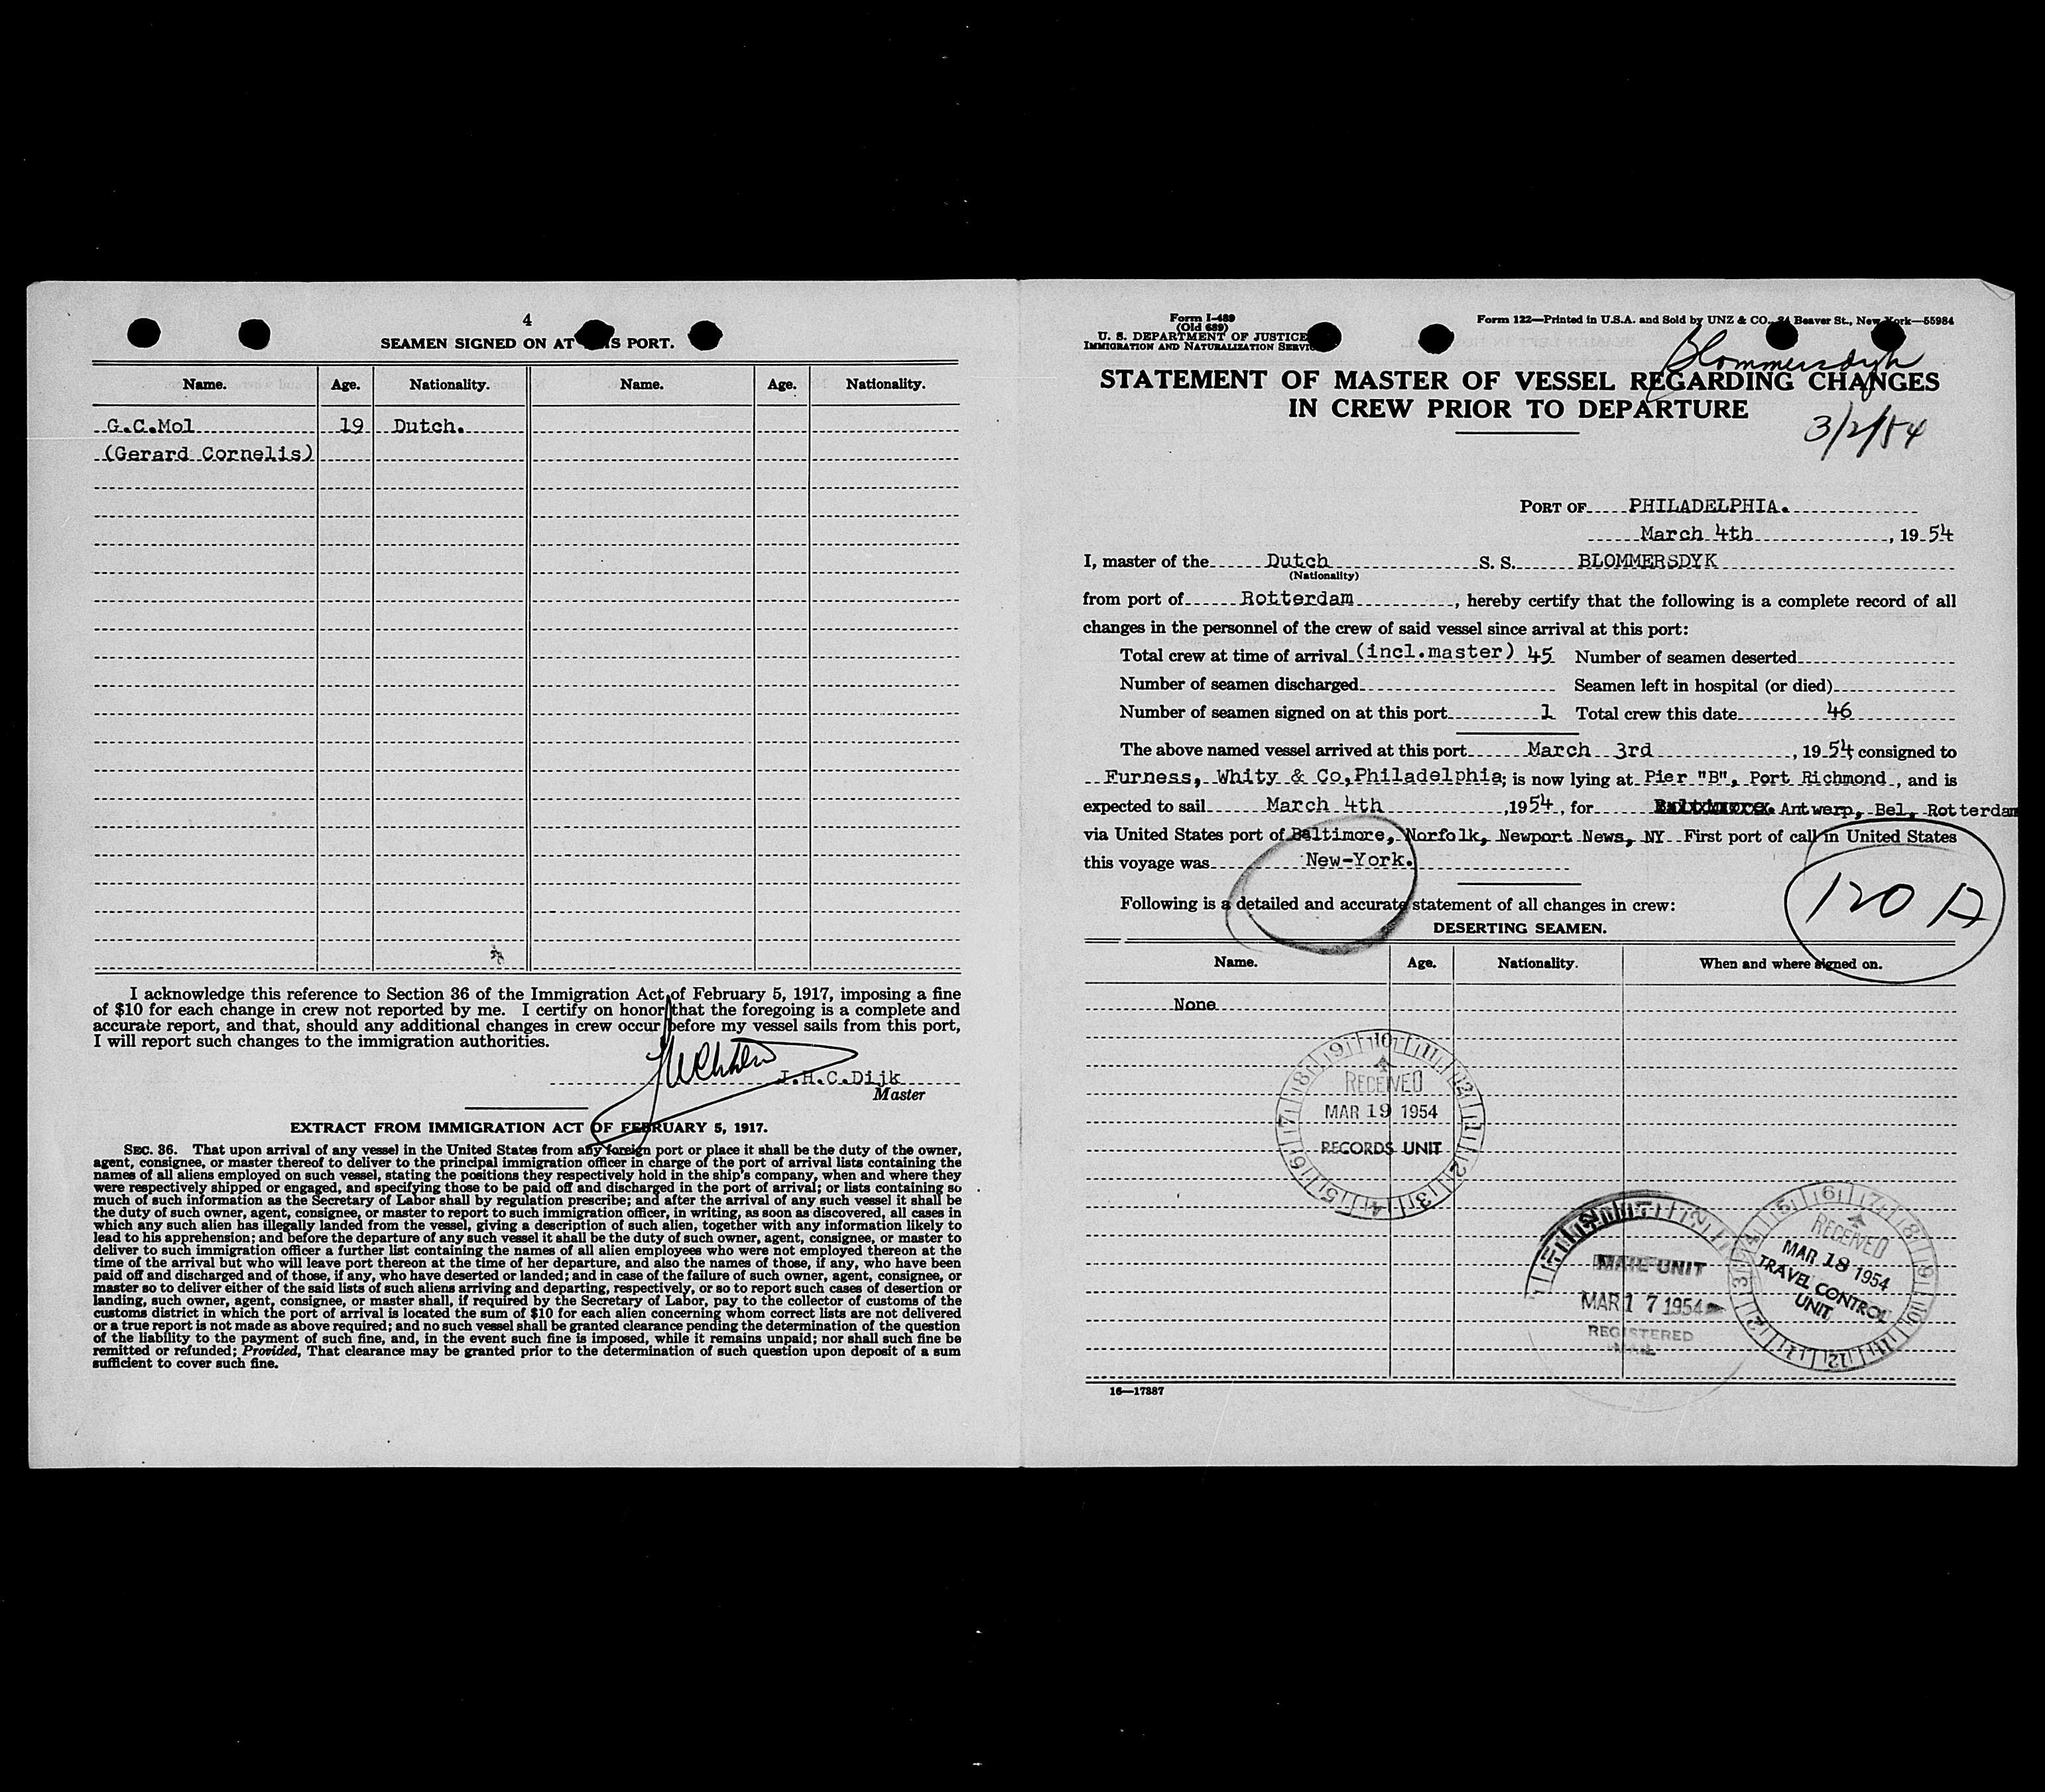 4
SEAMEN SIGNED ON AT THIS PORT.
Name. Age. Nationality. Name. Age. Nationality.
G.C.Mol 19 Dutch.
(Gerard Cornelis)
I acknowledge this reference to Section 36 of the Immigration Act of February 5, 1917, imposing a fine
of $10 for each change in crew not reported by me. I certify on honor that the foregoing is a complete and
accurate report, and that, should any additional changes in crew occur before my vessel sails from this port,
I will report such changes to the immigration authorities.
J.H.C.Dijk
Master
EXTRACT FROM IMMIGRATION ACT OF FEBRUARY 5, 1917.
SEC. 36. That upon arrival of any vessel in the United States from any foreign port or place it shall be the duty of the owner,
agent, consignee, or master thereof to deliver to the principal immigration officer in charge of the port of arrival lists containing the
names of all aliens employed on such vessel, stating the positions they respectively hold in the ship's company, when and where they
were respectively shipped or engaged, and specifying those to be paid off and discharged in the port of arrival; or lists containing so
much of such information as the Secretary of Labor shall by regulation prescribe; and after the arrival of any such vessel it shall be
the duty of such owner, agent, consignee, or master to report to such immigration officer, in writing, as soon as discovered, all cases in
which any such alien has illegally landed from the vessel, giving a description of such alien, together with any information likely to
lead to his apprehension; and before the departure of any such vessel it shall be the duty of such owner, agent, consignee, or master to
deliver to such immigration officer a further list containing the names of all alien employees who were not employed thereon at the
time of the arrival but who will leave port thereon at the time of her departure, and also the names of those, if any, who have been
paid off and discharged and of those, if any, who have deserted or landed; and in case of the failure of such owner, agent, consignee, or
master so to deliver either of the said lists of such aliens arriving and departing, respectively, or so to report such cases of desertion or
landing, such owner, agent, consignee, or master shall, if required by the Secretary of Labor, pay to the collector of customs of the
customs district in which the port of arrival is located the sum of $10 for each alien concerning whom correct lists are not delivered
or a true report is not made as above required; and no such vessel shall be granted clearance pending the determination of the question
of the liability to the payment of such fine, and, in the event such fine is imposed, while it remains unpaid; nor shall such fine be
remitted or refunded; Provided, That clearance may be granted prior to the determination of such question upon deposit of a sum
sufficient to cover such fine.
Form I-489
(Old 689)
U. S. DEPARTMENT OF JUSTICE
IMMIGRATION AND NATURALIZATION SERVICE
Form 122—Printed in U.S.A. and Sold by UNZ & CO., 24 Beaver St., New York—55984
Blommersdyk
STATEMENT OF MASTER OF VESSEL REGARDING CHANGES
IN CREW PRIOR TO DEPARTURE
3/2/54
PORT OF PHILADELPHIA.
March 4th, 1954
I, master of the Dutch S. S. BLOMMERSDYK
(Nationality)
from port of Rotterdam, hereby certify that the following is a complete record of all
changes in the personnel of the crew of said vessel since arrival at this port:
Total crew at time of arrival (incl.master) 45 Number of seamen deserted
Number of seamen discharged Seamen left in hospital (or died)
Number of seamen signed on at this port 1 Total crew this date 46
The above named vessel arrived at this port March 3rd, 1954, consigned to
Furness, Whity & Co,Philadelphia; is now lying at Pier "B", Port Richmond, and is
expected to sail March 4th, 1954, for Antwerp, Bel, Rotterdam
via United States port of Baltimore, Norfolk, Newport News, NY First port of call in United States
this voyage was New-York.
120 A
Following is a detailed and accurate statement of all changes in crew:
DESERTING SEAMEN.
Name. Age. Nationality. When and where signed on.
None
RECEIVED
MAR 19 1954
RECORDS UNIT
MAIL UNIT
MAR 17 1954
REGISTERED
MAIL
RECEIVED
MAR 18 1954
TRAVEL CONTROL
UNIT
16—17887